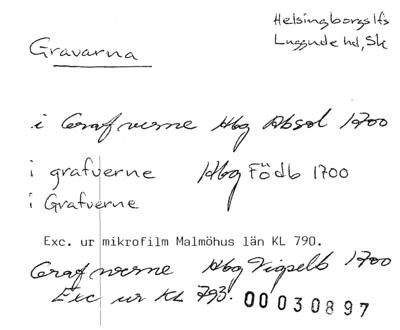 Helsingborgs lfs
Luggude hd, Sk
Gravarna
i Grafverne Hbg Absol 1700
i grafverne Hbg Födb 1700
i Grafverne
Exc. ur mikrofilm Malmöhus län KL 790.
Grafverne Hbg Vigselb 1700
Exc ur KL 793.
00030897